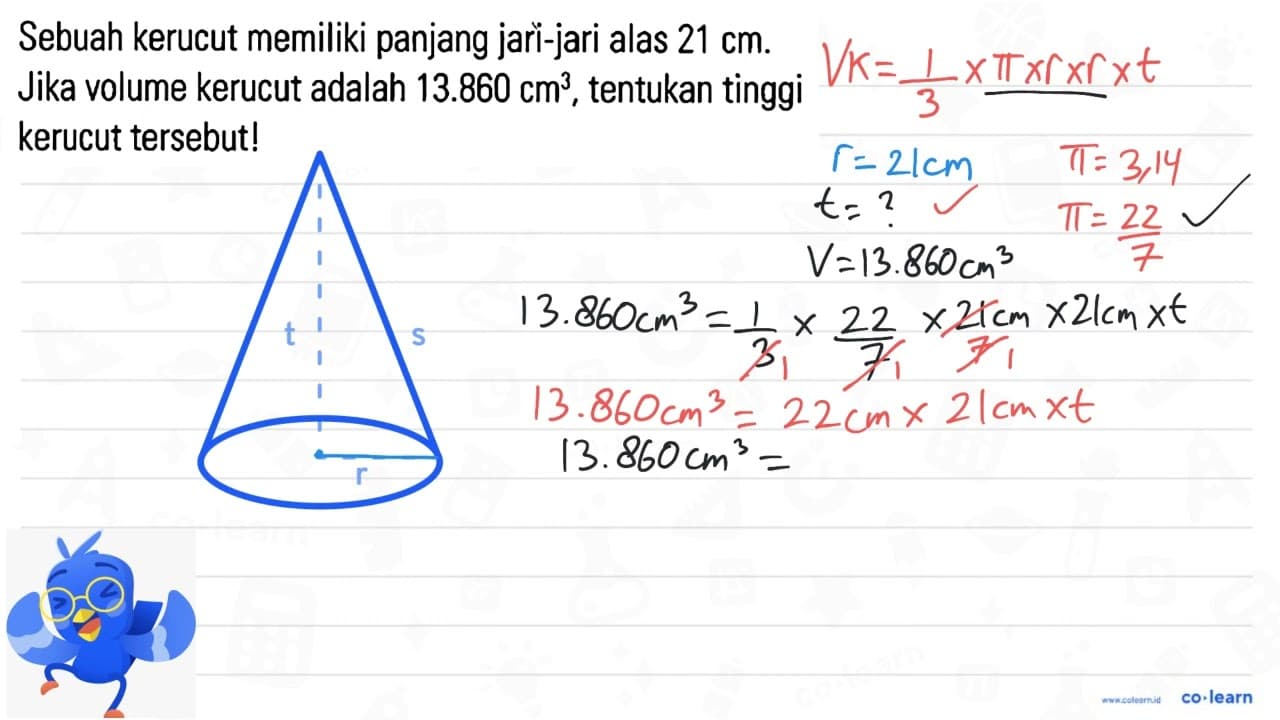 Sebuah kerucut memiliki panjang jari-jari alas 21 cm.
Jika volume kerucut adalah 13.860 cm³, tentukan tinggi
kerucut tersebut!
VK = 1/3 x π x r x r x t
r = 21 cm
π = 3,14
t = ? ✓
π = 22/7 ✓
V = 13.860 cm³
t
s
r
13.860 cm³ = 1/3 1 x 22/7 1 x 21 cm/7 1 x 21 cm x t
13.860 cm³ = 22 cm x 21 cm x t
13.860 cm³ =
www.colearn.id co·learn